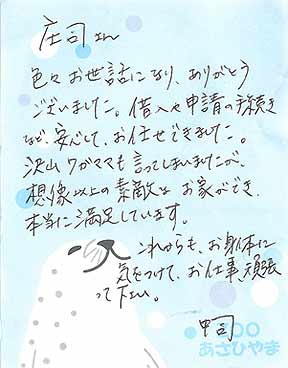 庄司さん
色々お世話になり、ありがとう
ございました。借入や申請の手続き
など、安心して、お任せできました。
沢山ワガママも言ってしまいましたが、
想像以上の素敵なお家ができ、
本当に満足しています。
これからも、お身体に
気をつけて、お仕事、頑張
って下さい。
甲司
あさひやま